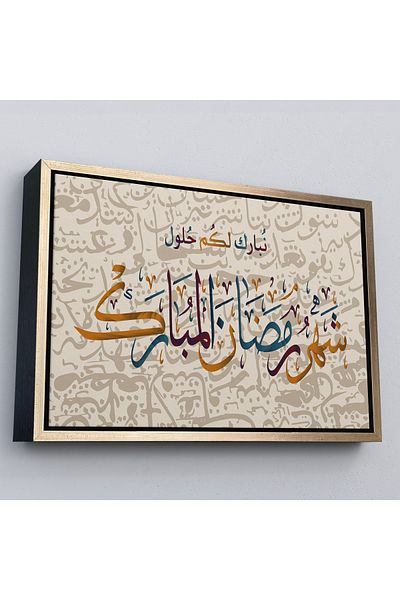 نُبارك لكُم حُلول
شَهرُ رَمَضَانَ المُبَارَك